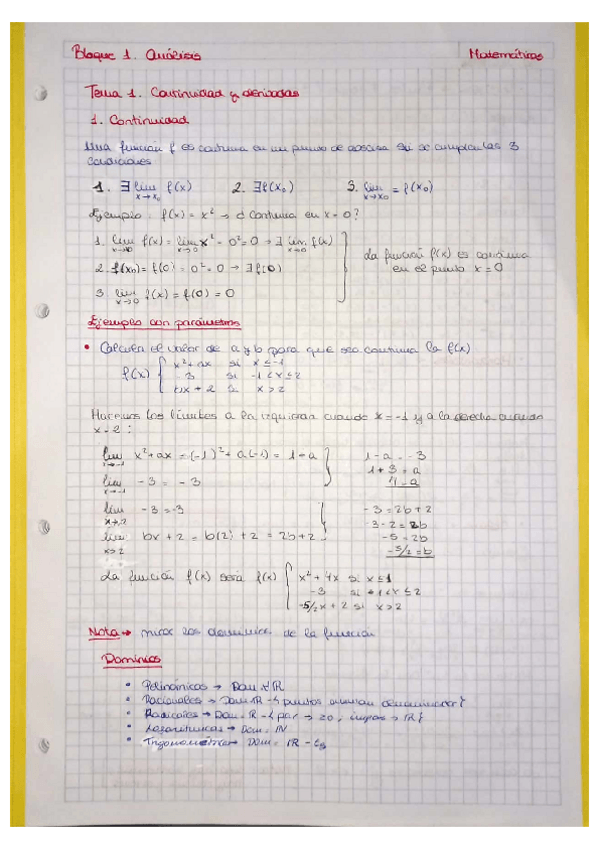 Bloque 1. Análisis
Matemáticas
Tema 1. Continuidad y derivadas
1. Continuidad
Una función f es continua en un punto de abscisa si se cumplen las 3
condiciones
1. ∃ lim x→x₀ f(x) 2. ∃f(x₀) 3. lim x→x₀ = f(x₀)
Ejemplo: f(x) = x² → d continua en x = 0?
1. lim x→0 f(x) = lim x→0 x² = 0² = 0 → ∃ lim x→0 f(x)
2. f(x₀) = f(0) = 0² = 0 → ∃ f(0)
3. lim x→0 f(x) = f(0) = 0
La función f(x) es continua
en el punto x = 0
Ejemplo con parámetros
• Calcula el valor de a y b para que sea continua la f(x)
f(x) { x² + ax si x ≤ -1
3 si -1 < x ≤ 2
bx + 2 si x > 2
Hacemos los límites a la izquierda cuando x = -1 y a la derecha cuando
x = 2:
lim x→-1 x² + ax = (-1)² + a(-1) = 1 - a
lim x→-1 -3 = -3
1 - a = -3
1 + 3 = a
4 = a
lim x→2 -3 = -3
lim x→2 bx + 2 = b(2) + 2 = 2b + 2
-3 = 2b + 2
-3 - 2 = 2b
-5 = 2b
-5/2 = b
La función f(x) será f(x) { x² + 4x si x ≤ 1
-3 si -1 < x ≤ 2
-5/2 x + 2 si x > 2
Nota → mirar los dominios de la función
Dominios
• Polinómicas → Dom ℝ
• Racionales → Dom ℝ - { puntos anulan denominador }
• Radicales → Dom = ℝ - { par → ≥0, impar → ℝ }
• Logarítmicas → Dom = IN
• Trigonométricas → Dom = ℝ - tg